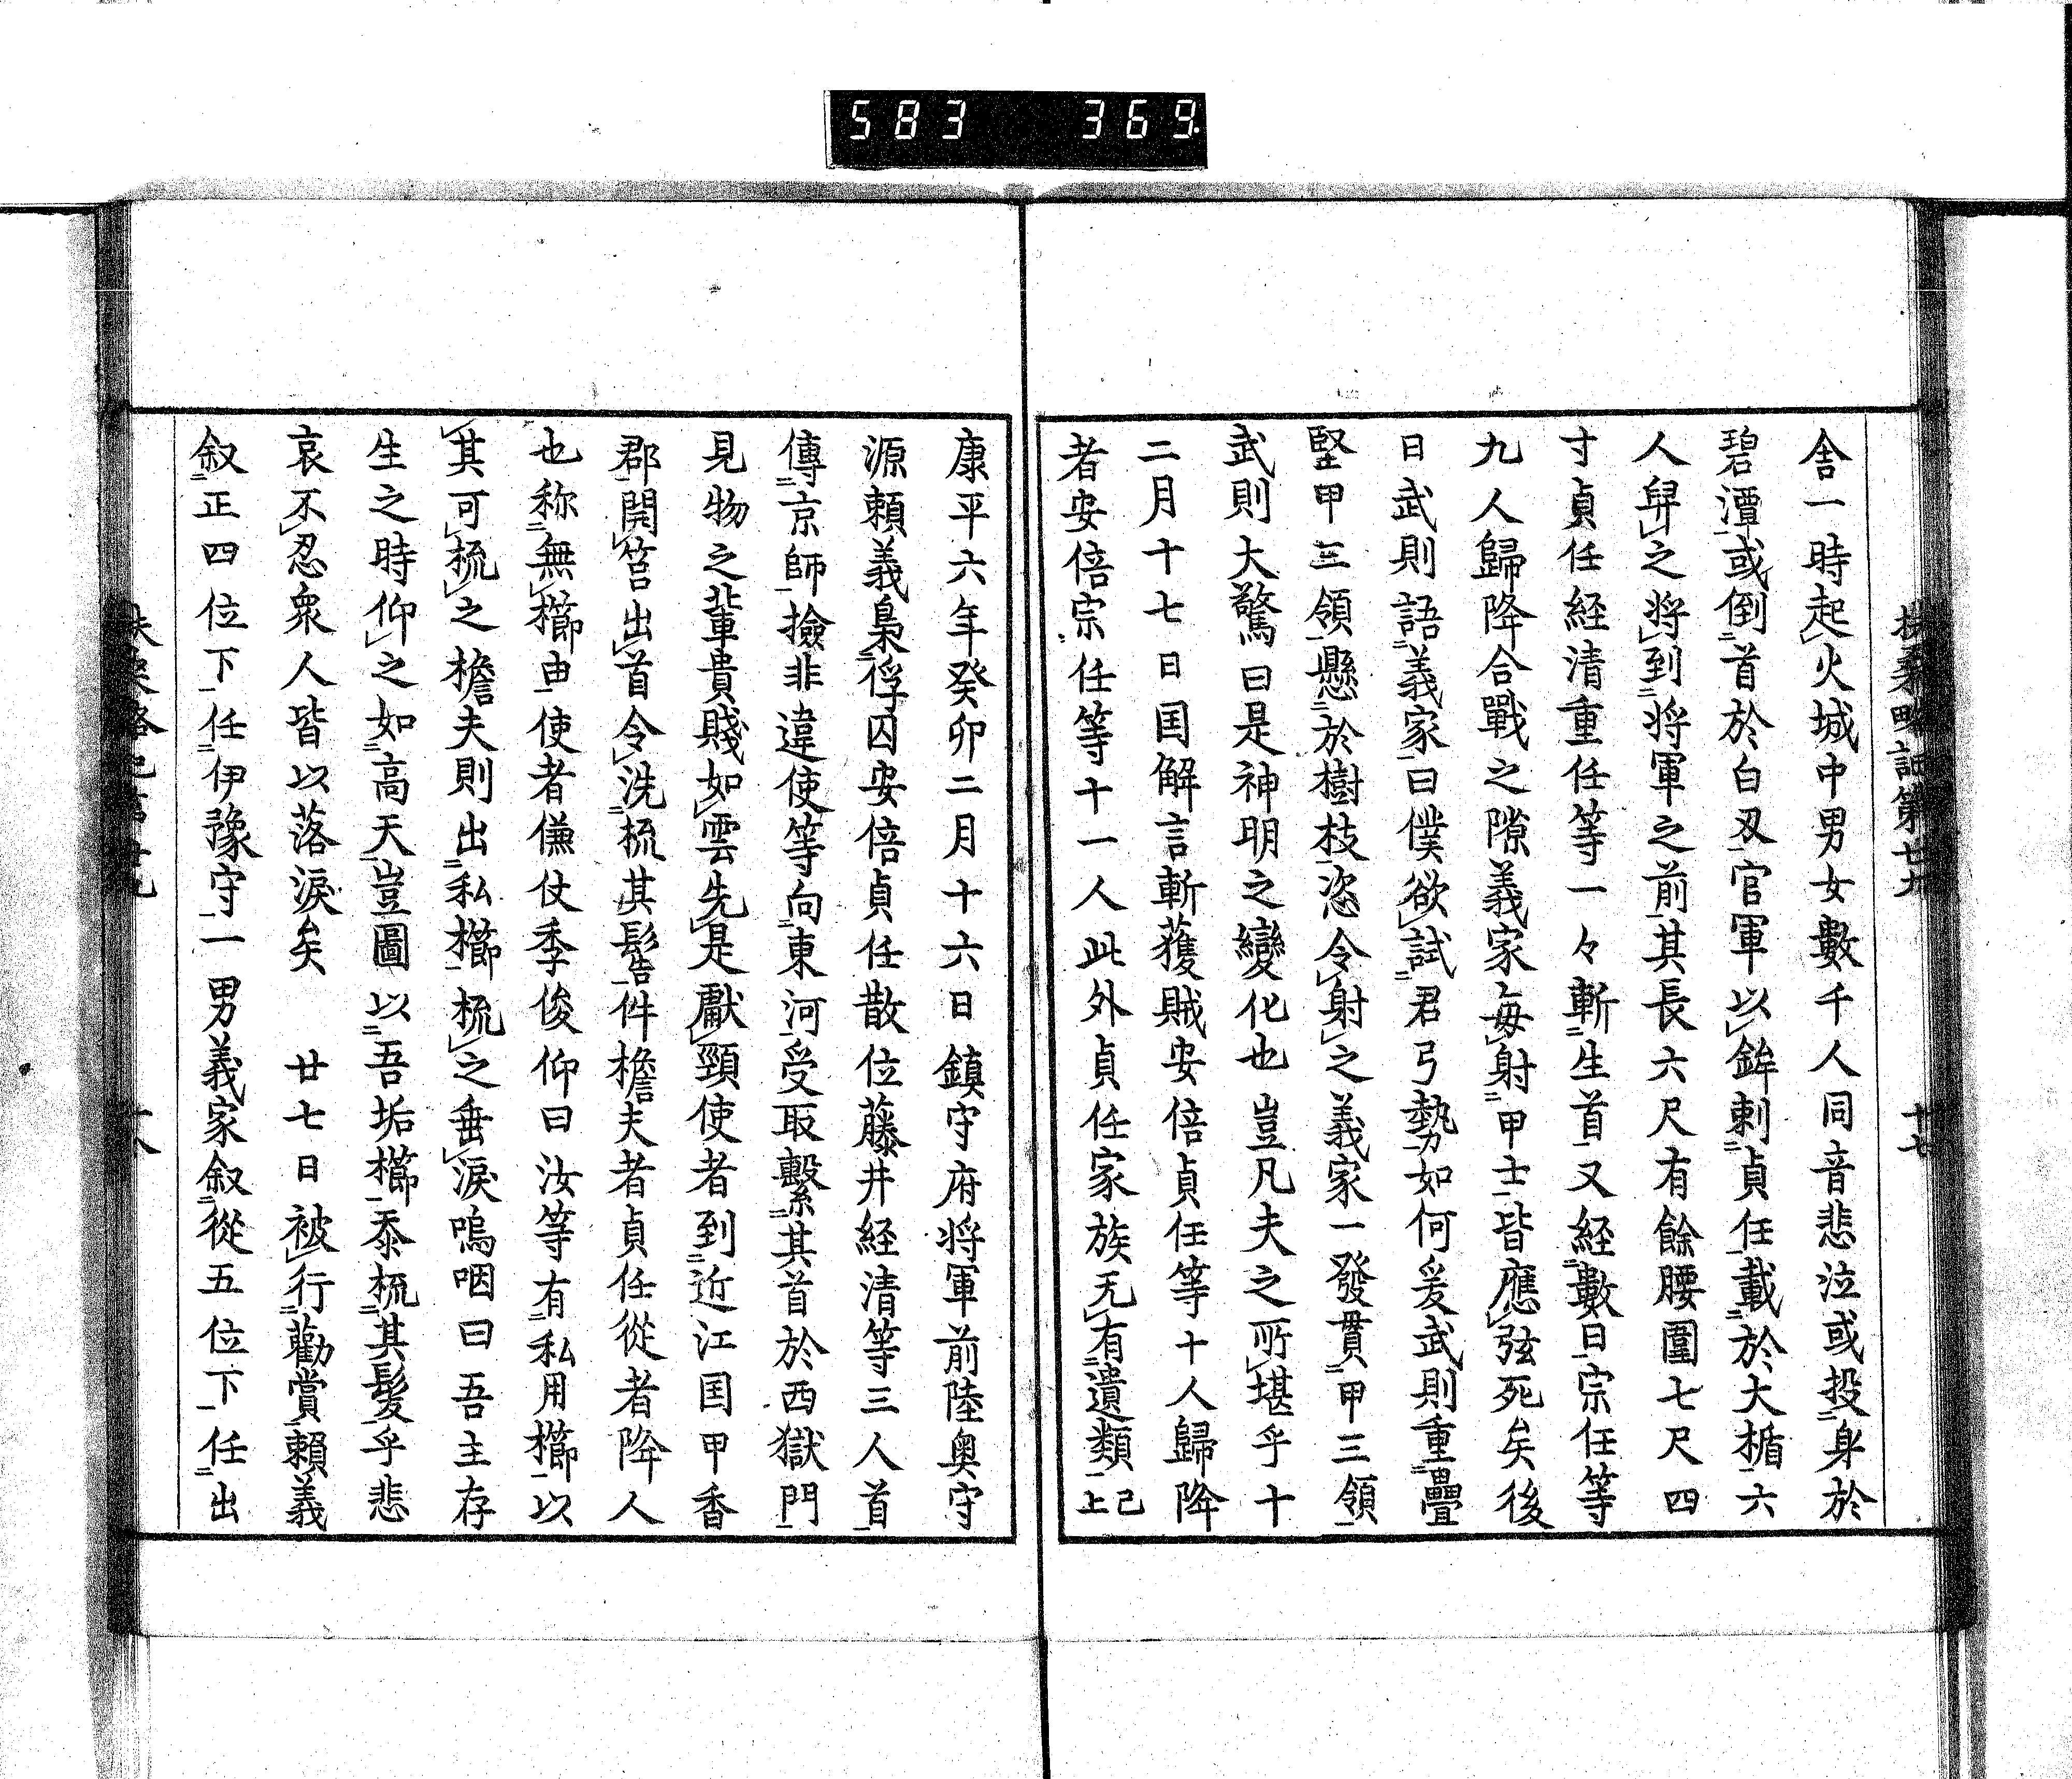 583 369
扶桑略記第廿九 十七
舎一時起火城中男女數千人同音悲泣或投身於
碧潭或倒首於白刄官軍以鉾刺貞任載於大楯六
人舁之将到将軍之前其長六尺有餘腰圍七尺四
寸貞任経清重任等一々斬生首又経數日宗任等
九人歸降合戰之隙義家毎射甲士皆應弦死矣後
日武則語義家曰僕欲試君弓勢如何爰武則重疊
堅甲三領懸於樹枝恣令射之義家一發貫甲三領
武則大驚曰是神明之變化也豈凡夫之所堪乎十
二月十七日国解言斬獲賊安倍貞任等十人歸降
者安倍宗任等十一人此外貞任家族无有遺類已上
康平六年癸卯二月十六日鎮守府将軍前陸奥守
源頼義梟俘囚安倍貞任散位藤井経清等三人首
傳京師撿非違使等向東河受取繫其首於西獄門
見物之輩貴賤如雲先是獻頸使者到近江国甲香
郡開筥出首令洗梳其髻件檐夫者貞任從者降人
也称無櫛由使者傔仗季俊仰曰汝等有私用櫛以
其可梳之檐夫則出私櫛梳之垂淚嗚咽曰吾主存
生之時仰之如高天豈圖以吾垢櫛忝梳其髪乎悲
哀不忍衆人皆以落淚矣 廿七日被行勸賞頼義
叙正四位下任伊豫守一男義家叙從五位下任出
扶桑略記第廿九 十八